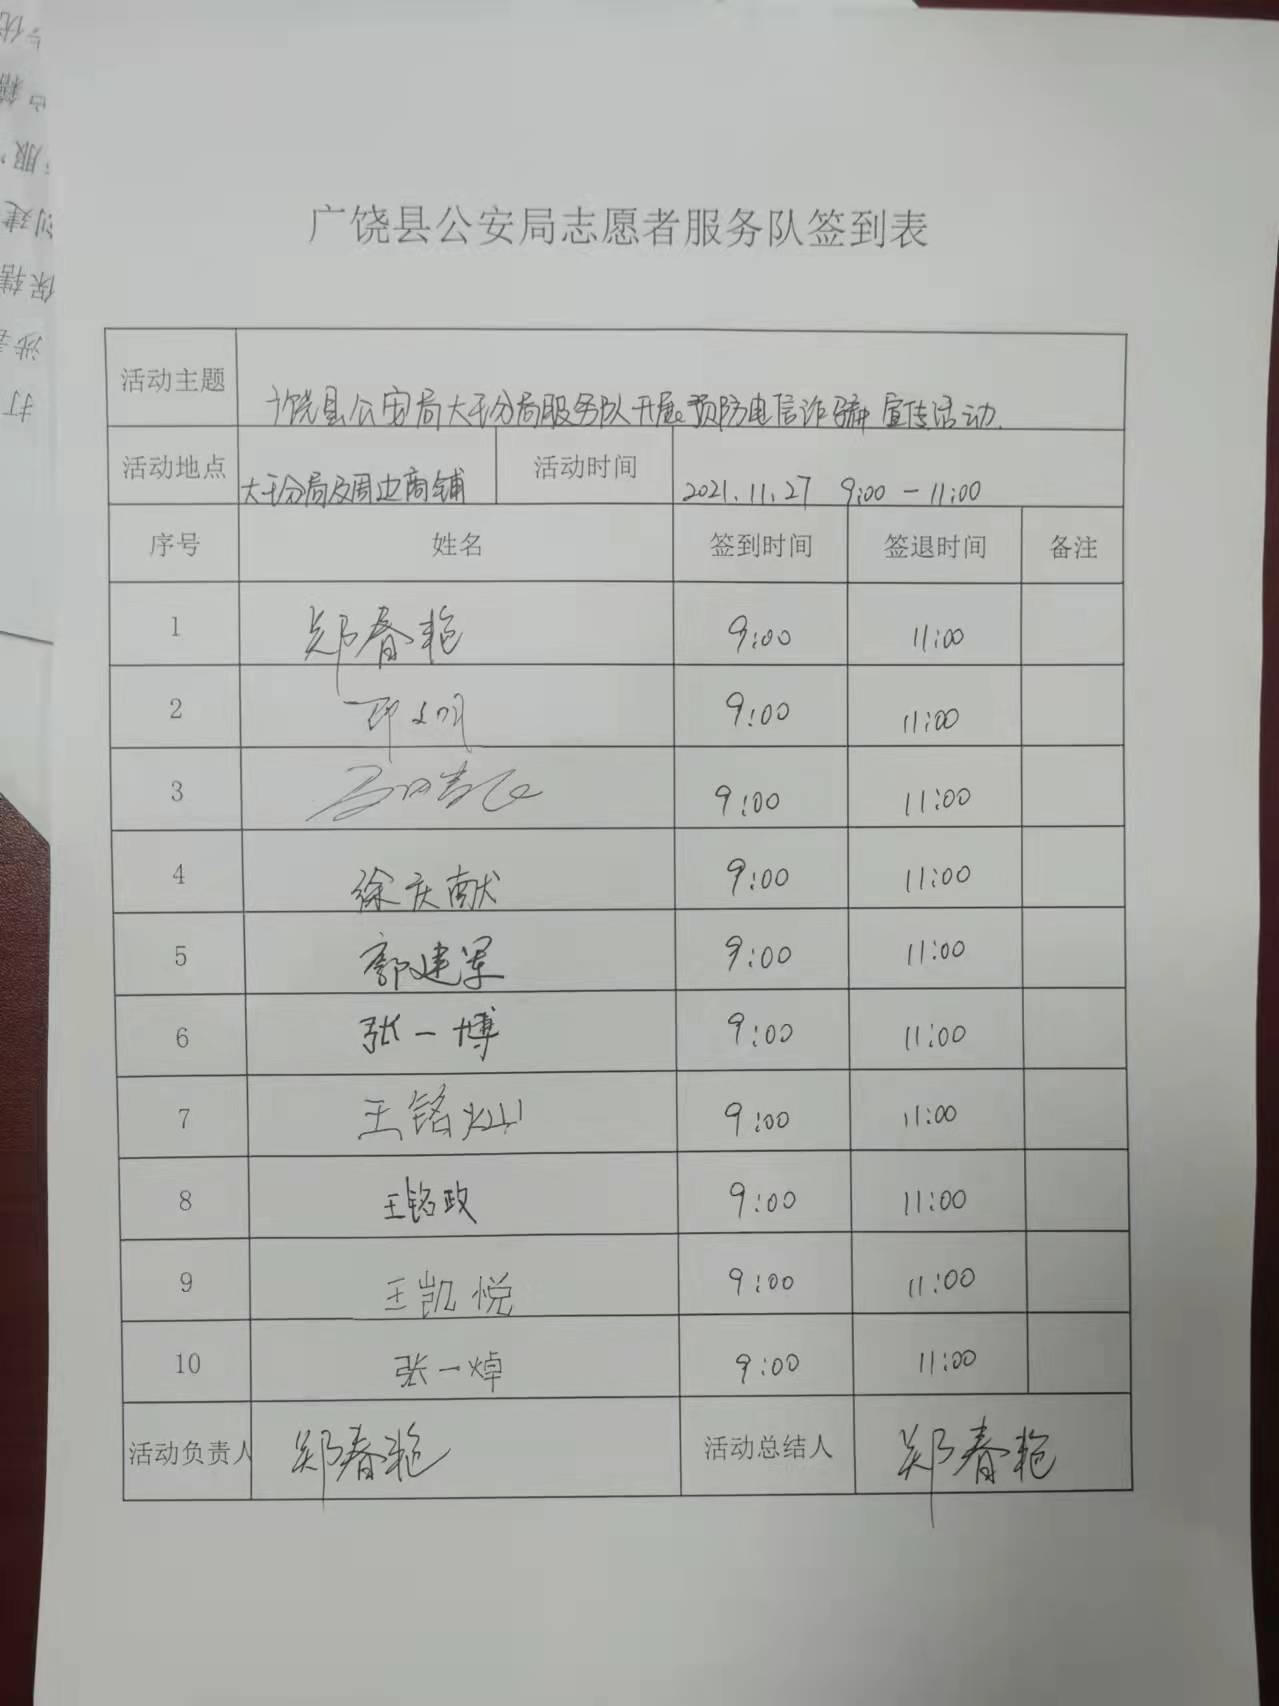 广饶县公安局志愿者服务队签到表
活动主题 广饶县公安局大王分局服务队开展预防电信诈骗宣传活动.
活动地点 大王分局及周边商铺 活动时间 2021.11.27 9:00-11:00
序号 姓名 签到时间 签退时间 备注
1 郑春艳 9:00 11:00
2 9:00 11:00
3 9:00 11:00
4 徐庆献 9:00 11:00
5 郭建军 9:00 11:00
6 张一博 9:00 11:00
7 王铭灿 9:00 11:00
8 王铭政 9:00 11:00
9 王凯悦 9:00 11:00
10 张一焯 9:00 11:00
活动负责人 郑春艳 活动总结人 郑春艳